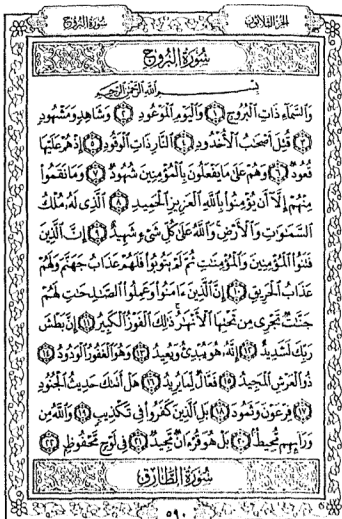 الجزء الثلاثون سورة البروج
سورة البروج
بسم الله الرحمن الرحيم
وَالسَّمَاءِ ذَاتِ الْبُرُوجِ ۝١ وَالْيَوْمِ الْمَوْعُودِ ۝٢ وَشَاهِدٍ وَمَشْهُودٍ
۝٣ قُتِلَ أَصْحَٰبُ الْأُخْدُودِ ۝٤ النَّارِ ذَاتِ الْوَقُودِ ۝٥ إِذْ هُمْ عَلَيْهَا
قُعُودٌ ۝٦ وَهُمْ عَلَىٰ مَا يَفْعَلُونَ بِالْمُؤْمِنِينَ شُهُودٌ ۝٧ وَمَا نَقَمُوا
مِنْهُمْ إِلَّا أَن يُؤْمِنُوا بِاللَّهِ الْعَزِيزِ الْحَمِيدِ ۝٨ الَّذِي لَهُ مُلْكُ
السَّمَٰوَٰتِ وَالْأَرْضِ وَاللَّهُ عَلَىٰ كُلِّ شَيْءٍ شَهِيدٌ ۝٩ إِنَّ الَّذِينَ
فَتَنُوا الْمُؤْمِنِينَ وَالْمُؤْمِنَٰتِ ثُمَّ لَمْ يَتُوبُوا فَلَهُمْ عَذَابُ جَهَنَّمَ وَلَهُمْ
عَذَابُ الْحَرِيقِ ۝١٠ إِنَّ الَّذِينَ ءَامَنُوا وَعَمِلُوا الصَّٰلِحَٰتِ لَهُمْ
جَنَّٰتٌ تَجْرِي مِن تَحْتِهَا الْأَنْهَٰرُ ذَٰلِكَ الْفَوْزُ الْكَبِيرُ ۝١١ إِنَّ بَطْشَ
رَبِّكَ لَشَدِيدٌ ۝١٢ إِنَّهُ هُوَ يُبْدِئُ وَيُعِيدُ ۝١٣ وَهُوَ الْغَفُورُ الْوَدُودُ ۝١٤
ذُو الْعَرْشِ الْمَجِيدُ ۝١٥ فَعَّالٌ لِّمَا يُرِيدُ ۝١٦ هَلْ أَتَىٰكَ حَدِيثُ الْجُنُودِ
۝١٧ فِرْعَوْنَ وَثَمُودَ ۝١٨ بَلِ الَّذِينَ كَفَرُوا فِي تَكْذِيبٍ ۝١٩ وَاللَّهُ مِن
وَرَائِهِم مُّحِيطٌ ۝٢٠ بَلْ هُوَ قُرْءَانٌ مَّجِيدٌ ۝٢١ فِي لَوْحٍ مَّحْفُوظٍ ۝٢٢
سورة الطارق
٥٩٠